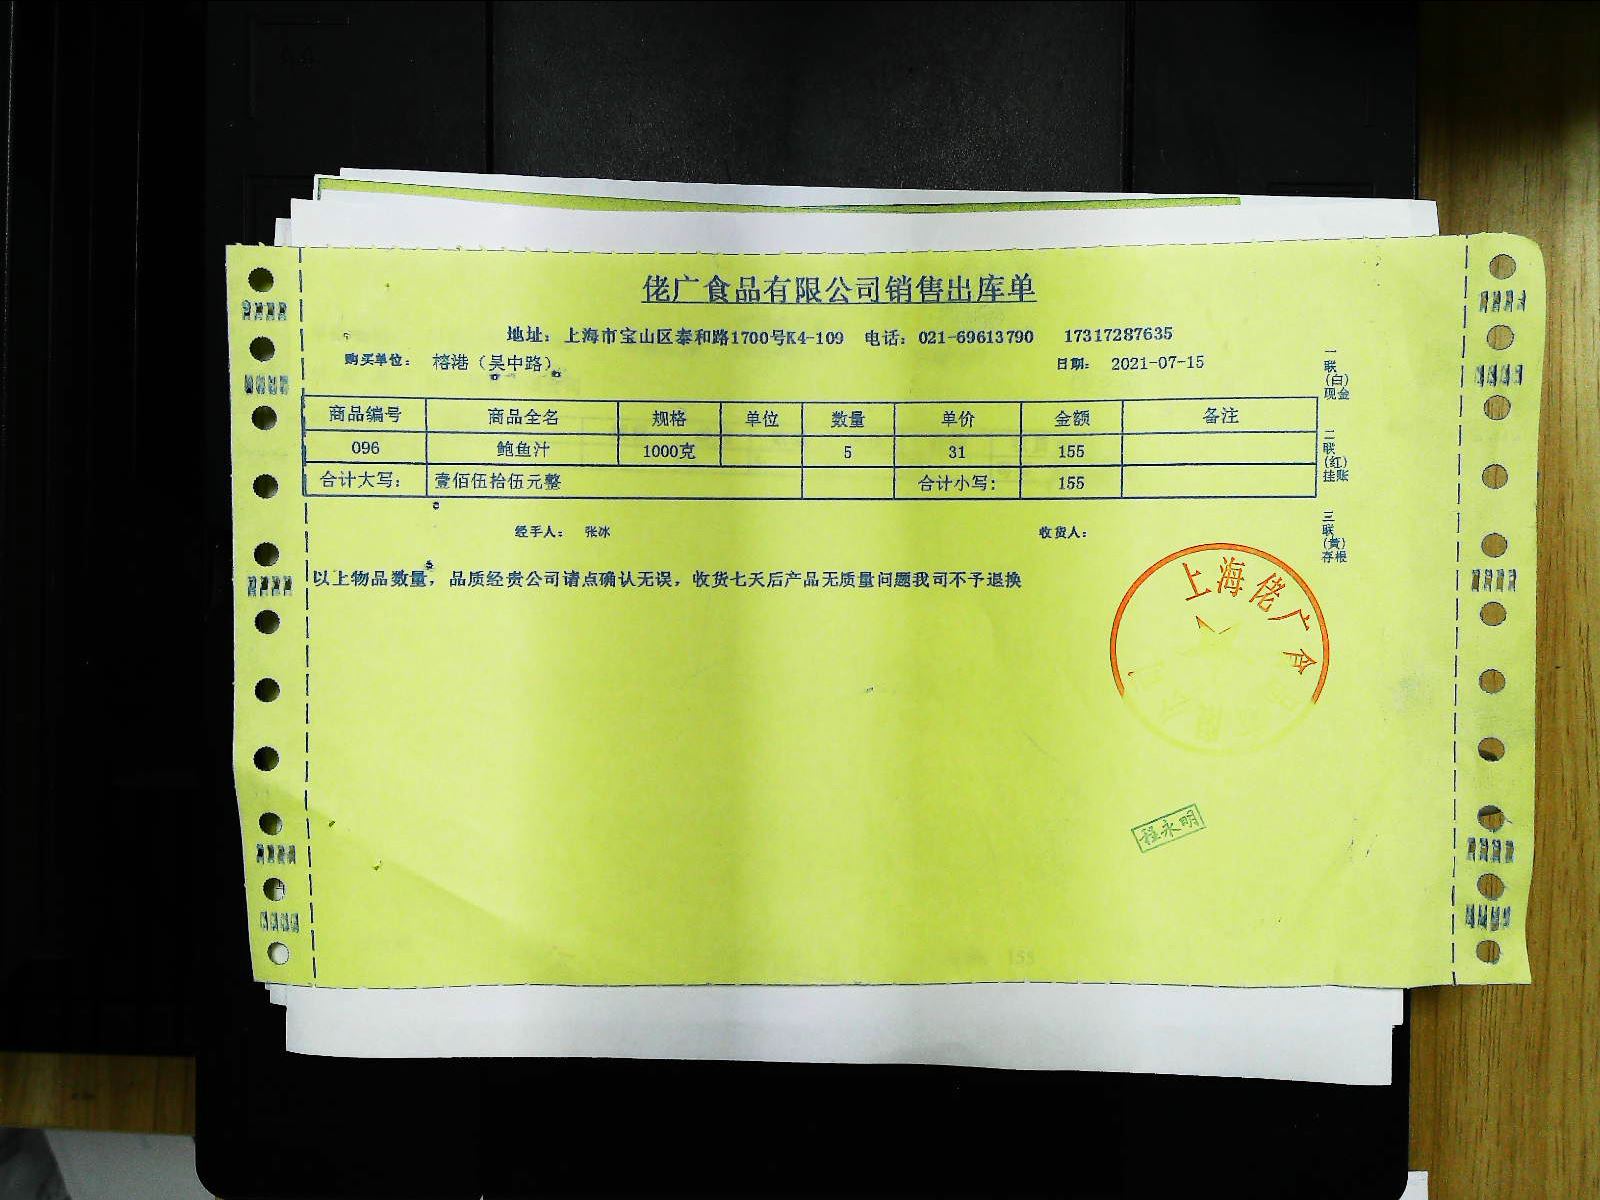 佬广食品有限公司销售出库单
地址：上海市宝山区泰和路1700号K4-109 电话：021-69613790 17317287635
购买单位：榕港（吴中路） 日期：2021-07-15
商品编号 商品全名 规格 单位 数量 单价 金额 备注
096 鲍鱼汁 1000克 5 31 155
合计大写：壹佰伍拾伍元整 合计小写：155
经手人：张冰 收货人：
以上物品数量，品质经贵公司请点确认无误，收货七天后产品无质量问题我司不予退换
一联(白)现金
二联(红)挂账
三联(黄)存根
上海佬广食
程永明
155